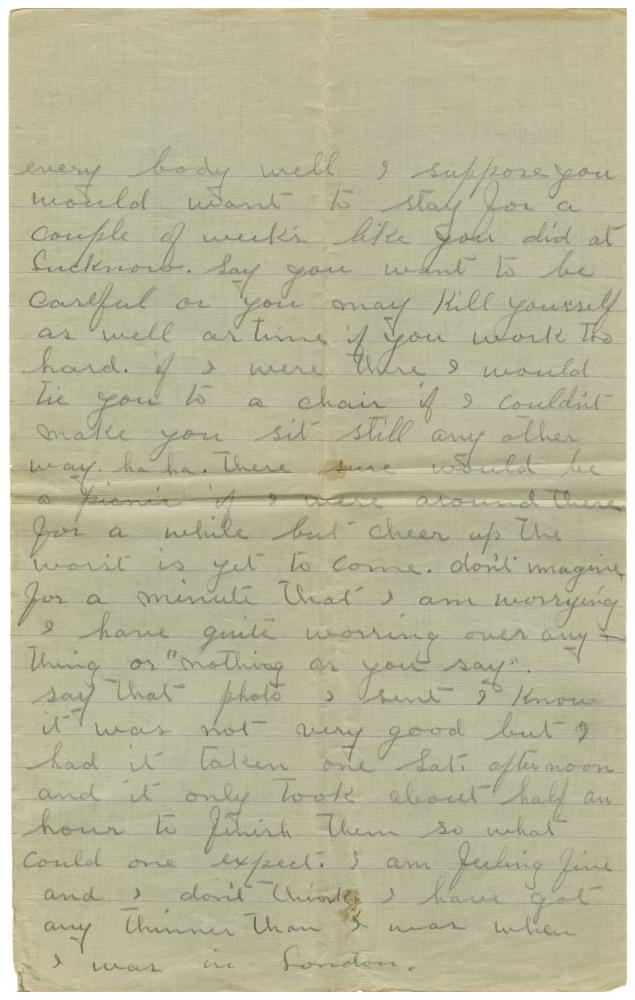 every body well I suppose you
would want to stay for a
couple of weeks like you did at
Lucknow. Say you want to be
careful or you may kill yourself
as well as time if you work too
hard. if I were there I would
tie you to a chair if I couldn't
make you sit still any other
way. ha ha. There sure would be
a picnic if I were around there
for a while but cheer up the
worst is yet to come. don't imagine
for a minute that I am worrying
I have quite worring over any-
thing or "nothing as you say".
say that photo I sent I know
it was not very good but I
had it taken one Sat. afternoon
and it only took about half an
hour to finish them so what
could one expect. I am feeling fine
and I don't think I have got
any thinner than I was when
I was in London.